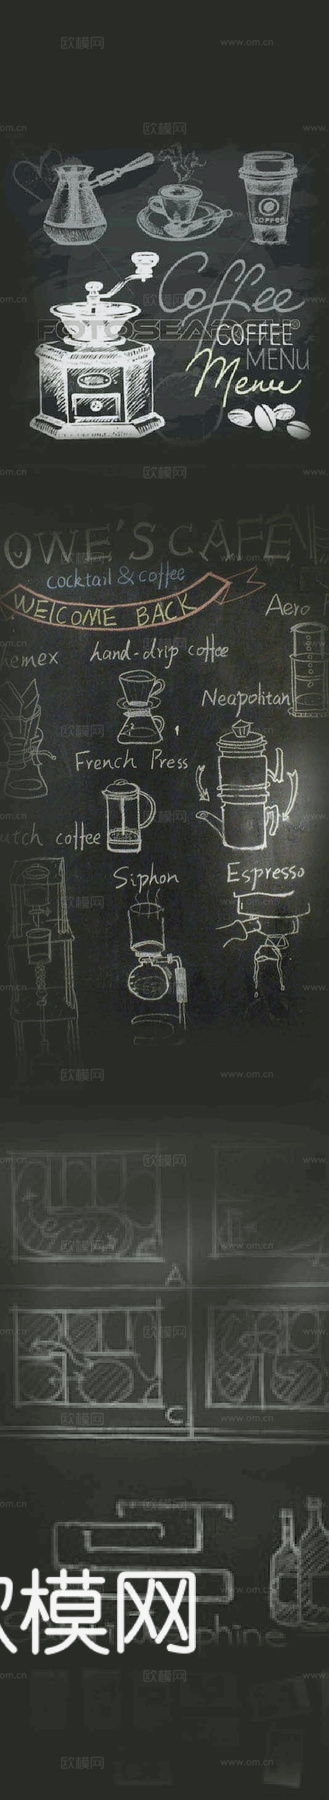 COFFEE
Coffee
FOTOSEARCH®
COFFEE
MENU
Menu
OWE'S CAFE
cocktail & coffee
WELCOME BACK
Aero
hemex
hand-drip coffee
Neapolitan
French Press
utch coffee
Siphon
Espresso
A
C
欧模网
phine
欧模网
www.om.cn